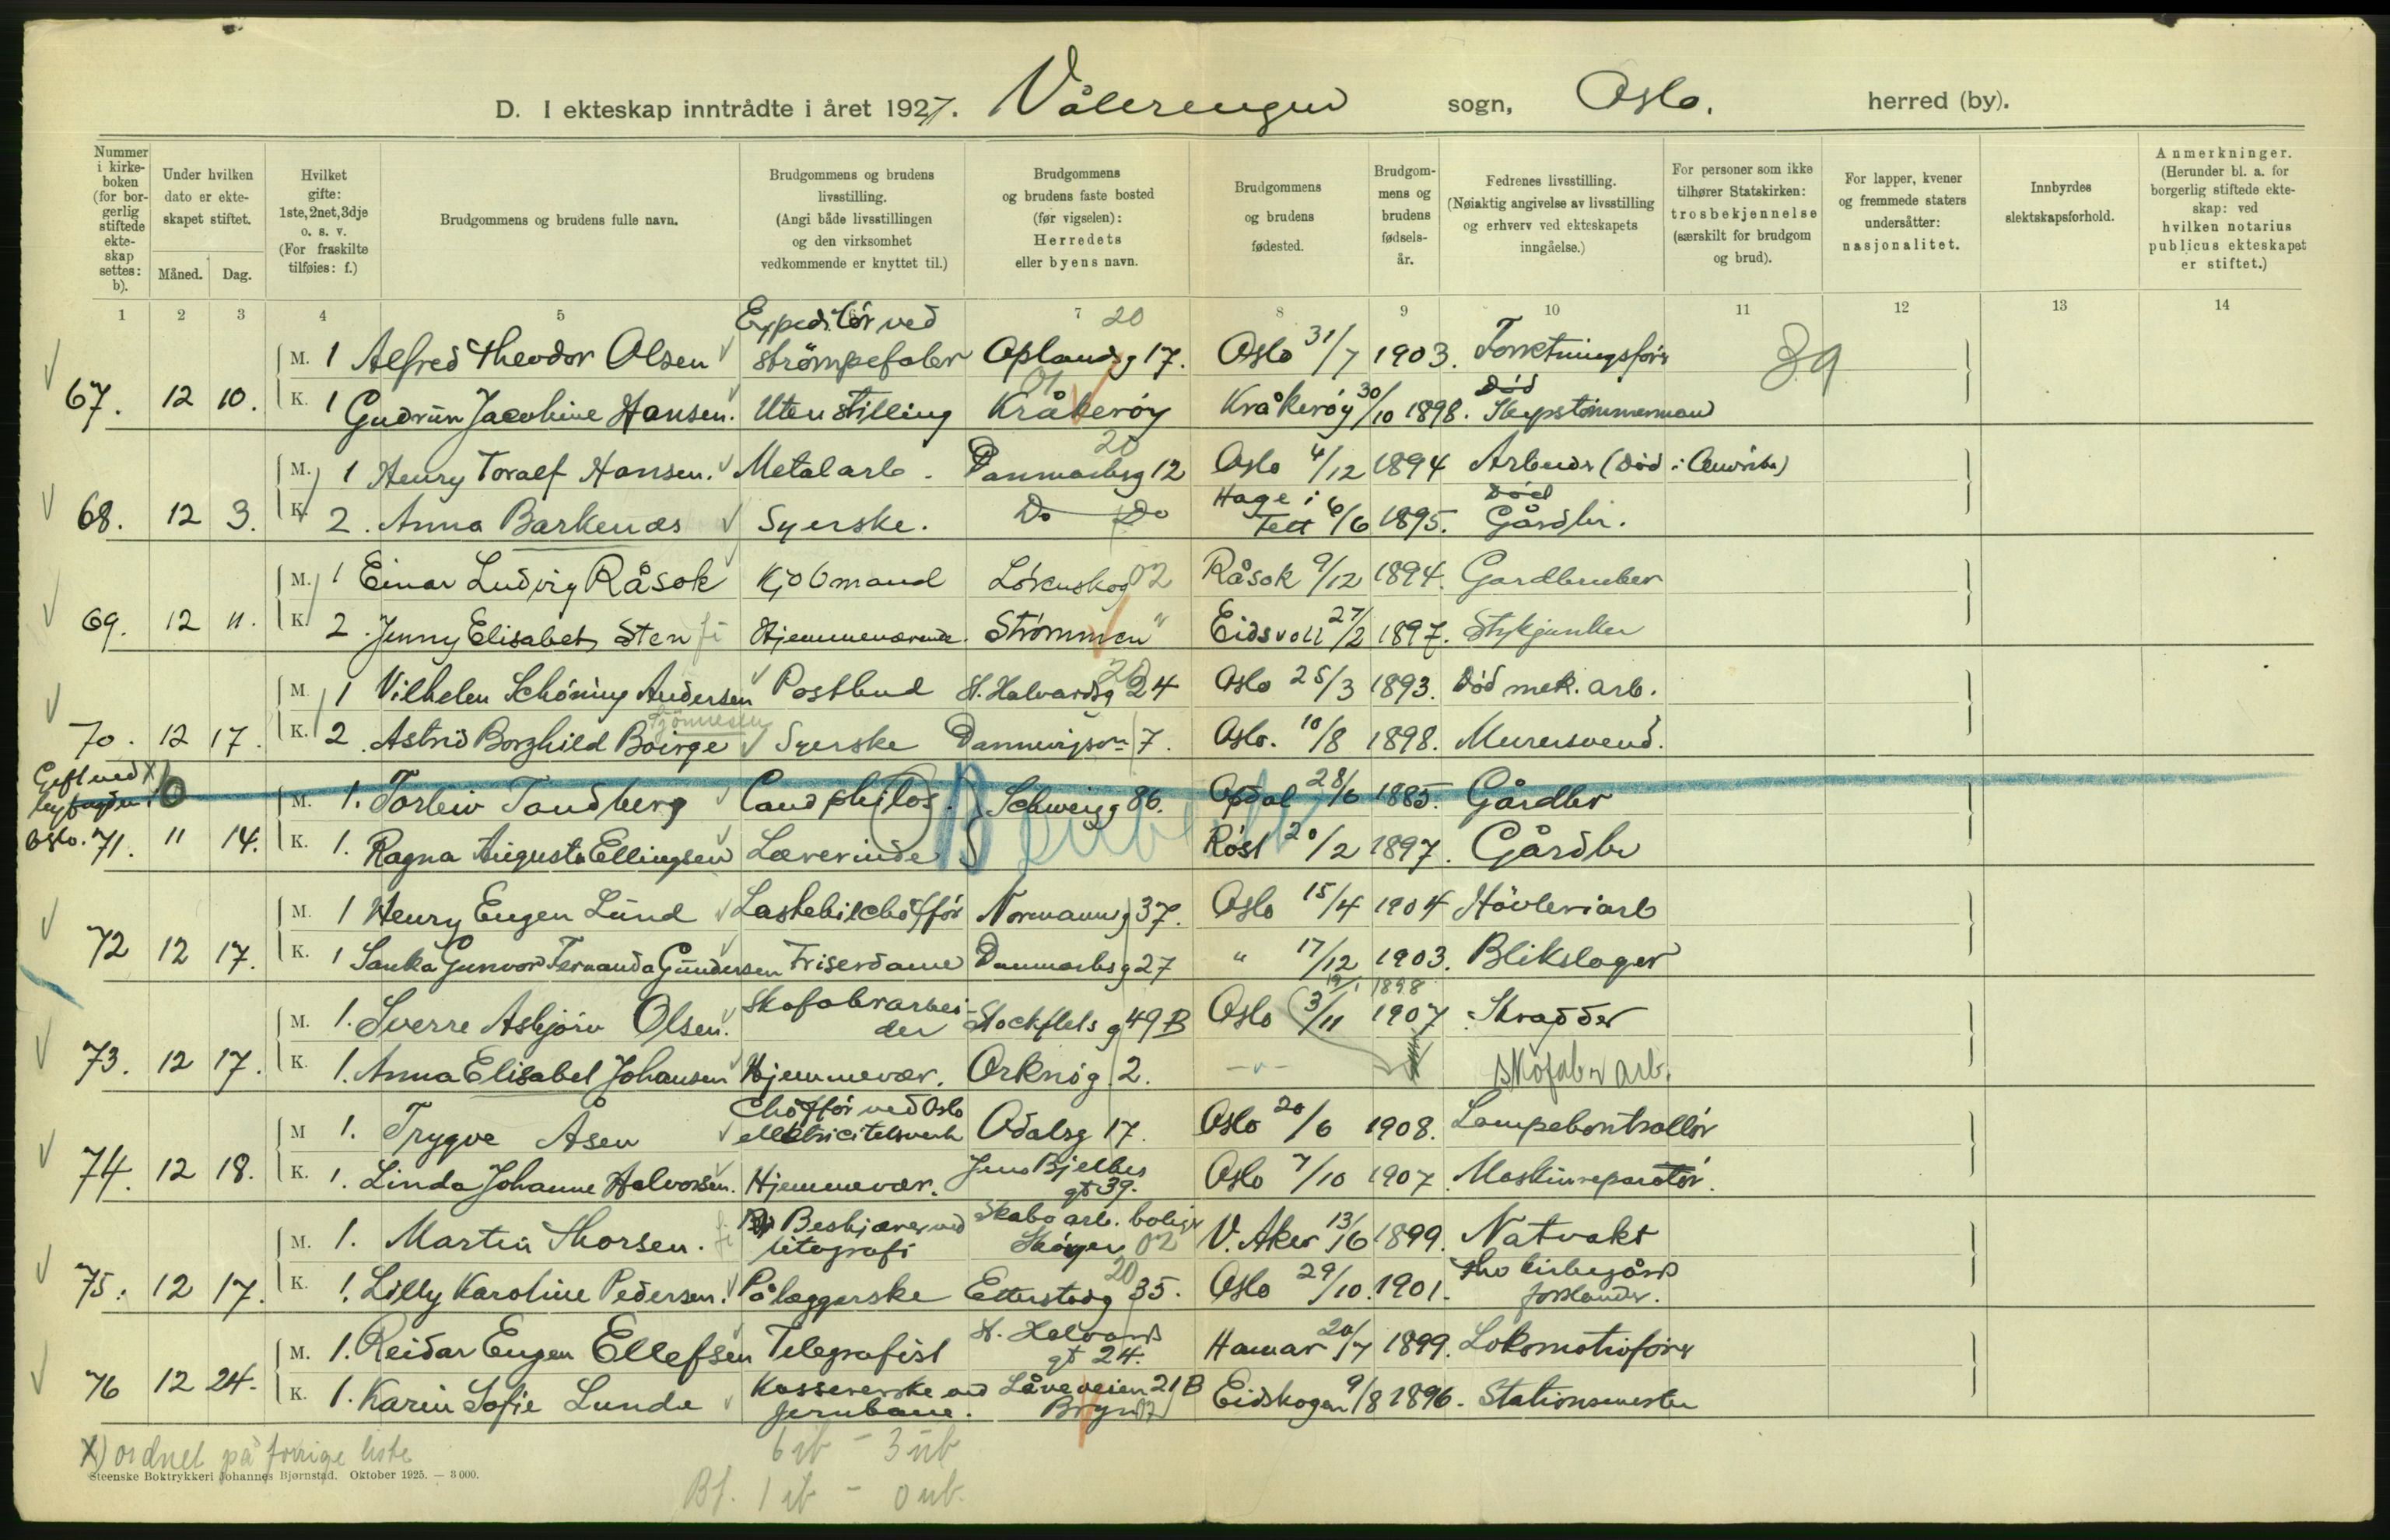 D. I ekteskap inntrådte i året 1927. Vålerengen sogn, Oslo. herred (by).
Nummer i kirkeboken (for borgerlig stiftede ekteskap settes: b).
Under hvilken dato er ekteskapet stiftet.
Måned. Dag.
Hvilket gifte: 1ste, 2net, 3dje o. s. v. (For fraskilte tilføies: f.)
Brudgommens og brudens fulle navn.
Brudgommens og brudens livsstilling. (Angi både livsstillingen og den virksomhet vedkommende er knyttet til.)
Brudgommens og brudens faste bosted (før vigselen): Herredets eller byens navn.
Brudgommens og brudens fødested.
Brudgommens og brudens fødselsår.
Fedrenes livsstilling. (Nøiaktig angivelse av livsstilling og erhverv ved ekteskapets inngåelse.)
For personer som ikke tilhører Statskirken: trosbekjennelse (særskilt for brudgom og brud).
For lapper, kvener og fremmede staters undersåtter: nasjonalitet.
Innbyrdes slektskapsforhold.
Anmerkninger. (Herunder bl. a. for borgerlig stiftede ekteskap: ved hvilken notarius publicus ekteskapet er stiftet.)
1 2 3 4 5 7 8 9 10 11 12 13 14
Expeditør ved 20
M. 1 Alfred Theodor Olsen strømpefabr Oplandsg 17. Oslo 31/7 1903. Foretningsfører 89
67. 12 10. K. 1 Gudrun Jacobine Hansen. Uten stilling 01 Kråkerøy Kråkerøy 30/10 1898. Død Skipstømmermand
20
M. 1 Henry Toralf Hansen. Metalarb. Danmarksg 12 Oslo 4/12 1894 Arbeider (død i Amerika)
68. 12 3. K. 2. Anna Barkenæs Syerske. Do Do Hage i Tett 6/6 1895. Død Gårdbr.
M. 1 Einar Ludvig Råsok Kjöbmand Lörenskog 02 Råsok 9/12 1894. Gardbruker
69. 12 11. K. 2. Jenny Elisabet Sten fi Hjemmeværende. Strømmen " Eidsvoll 27/2 1897. Stykjunker
20
M. 1 Vilhelm Schöning Andersen Postbud St. Halvardsg 24 Oslo 25/3 1893. Død mek. arb.
Tjönnesen
70. 12 17. K. 2. Astrid Borghild Boirge Syerske Danmarksg 7. Oslo. 10/8 1898. Murersvend.
Gift ved x) 0
byfogden i
M. 1. Torleiv Tandberg Cand philos. Schweigg 86. Opdal 28/6 1885. Gårdbr
Oslo. 71. 11 14. K. 1. Ragna Augusta Ellingsen Lærerinde Røst 20/2 1897. Gårdbr
M. 1 Henry Eugen Lund Lastebilchófför Normannsg 37. Oslo 15/4 1904 Hövleriarb
72 12 17. K. 1 Sanka Gunvor Fernanda Gundersen Friserdame Danmarksg 27 " 17/12 1903. Blikslager
19/1 1898
M. 1. Sverre Asbjörn Olsen. Skofabrarbeider Stockflets g 49 B Oslo 3/11 1907 Skrædder
73. 12 17. K. 1. Anna Elisabet Johansen Hjemmevær. Orknög. 2. -"- Skofabr arb.
M 1. Trygve Åsen Chófför ved Oslo elektricitetsverk Odalsg 17. Oslo 20/6 1908. Lampekontrollör
74. 12 18. K. 1. Linda Johanne Halvorsen. Hjemmevær. Jens Bjelkes gt 39. Oslo 7/10 1907. Maskinreparatör.
M. 1. Martin Thorsen. fi Beskjærer ved litografi Skabo arb. bolig Skøyen 02 V. Aker 13/6 1899. Natvakt
20
75. 12 17. K. 1. Lilly Karoline Pedersen. Pålæggerske Etterstadg 35. Oslo 29/10. 1901. kirkegårds forstander.
M. 1. Reidar Eugen Ellefsen Telegrafist St. Halvards gt 24. Hamar 20/7 1899. Lokomotivfører
76 12 24. K. 1. Karin Sofie Lunde Kassererske ved Jernbane. Låveveien 21 B Bryn 02 Eidskogen 9/8 1896. Stationsmester
x) ordnet på forrige liste
6 ib - 3 ub
Steenske Boktrykkeri Johannes Bjørnstad. Oktober 1925. — 3 000.
Bf. 1 ib - 0 ub.